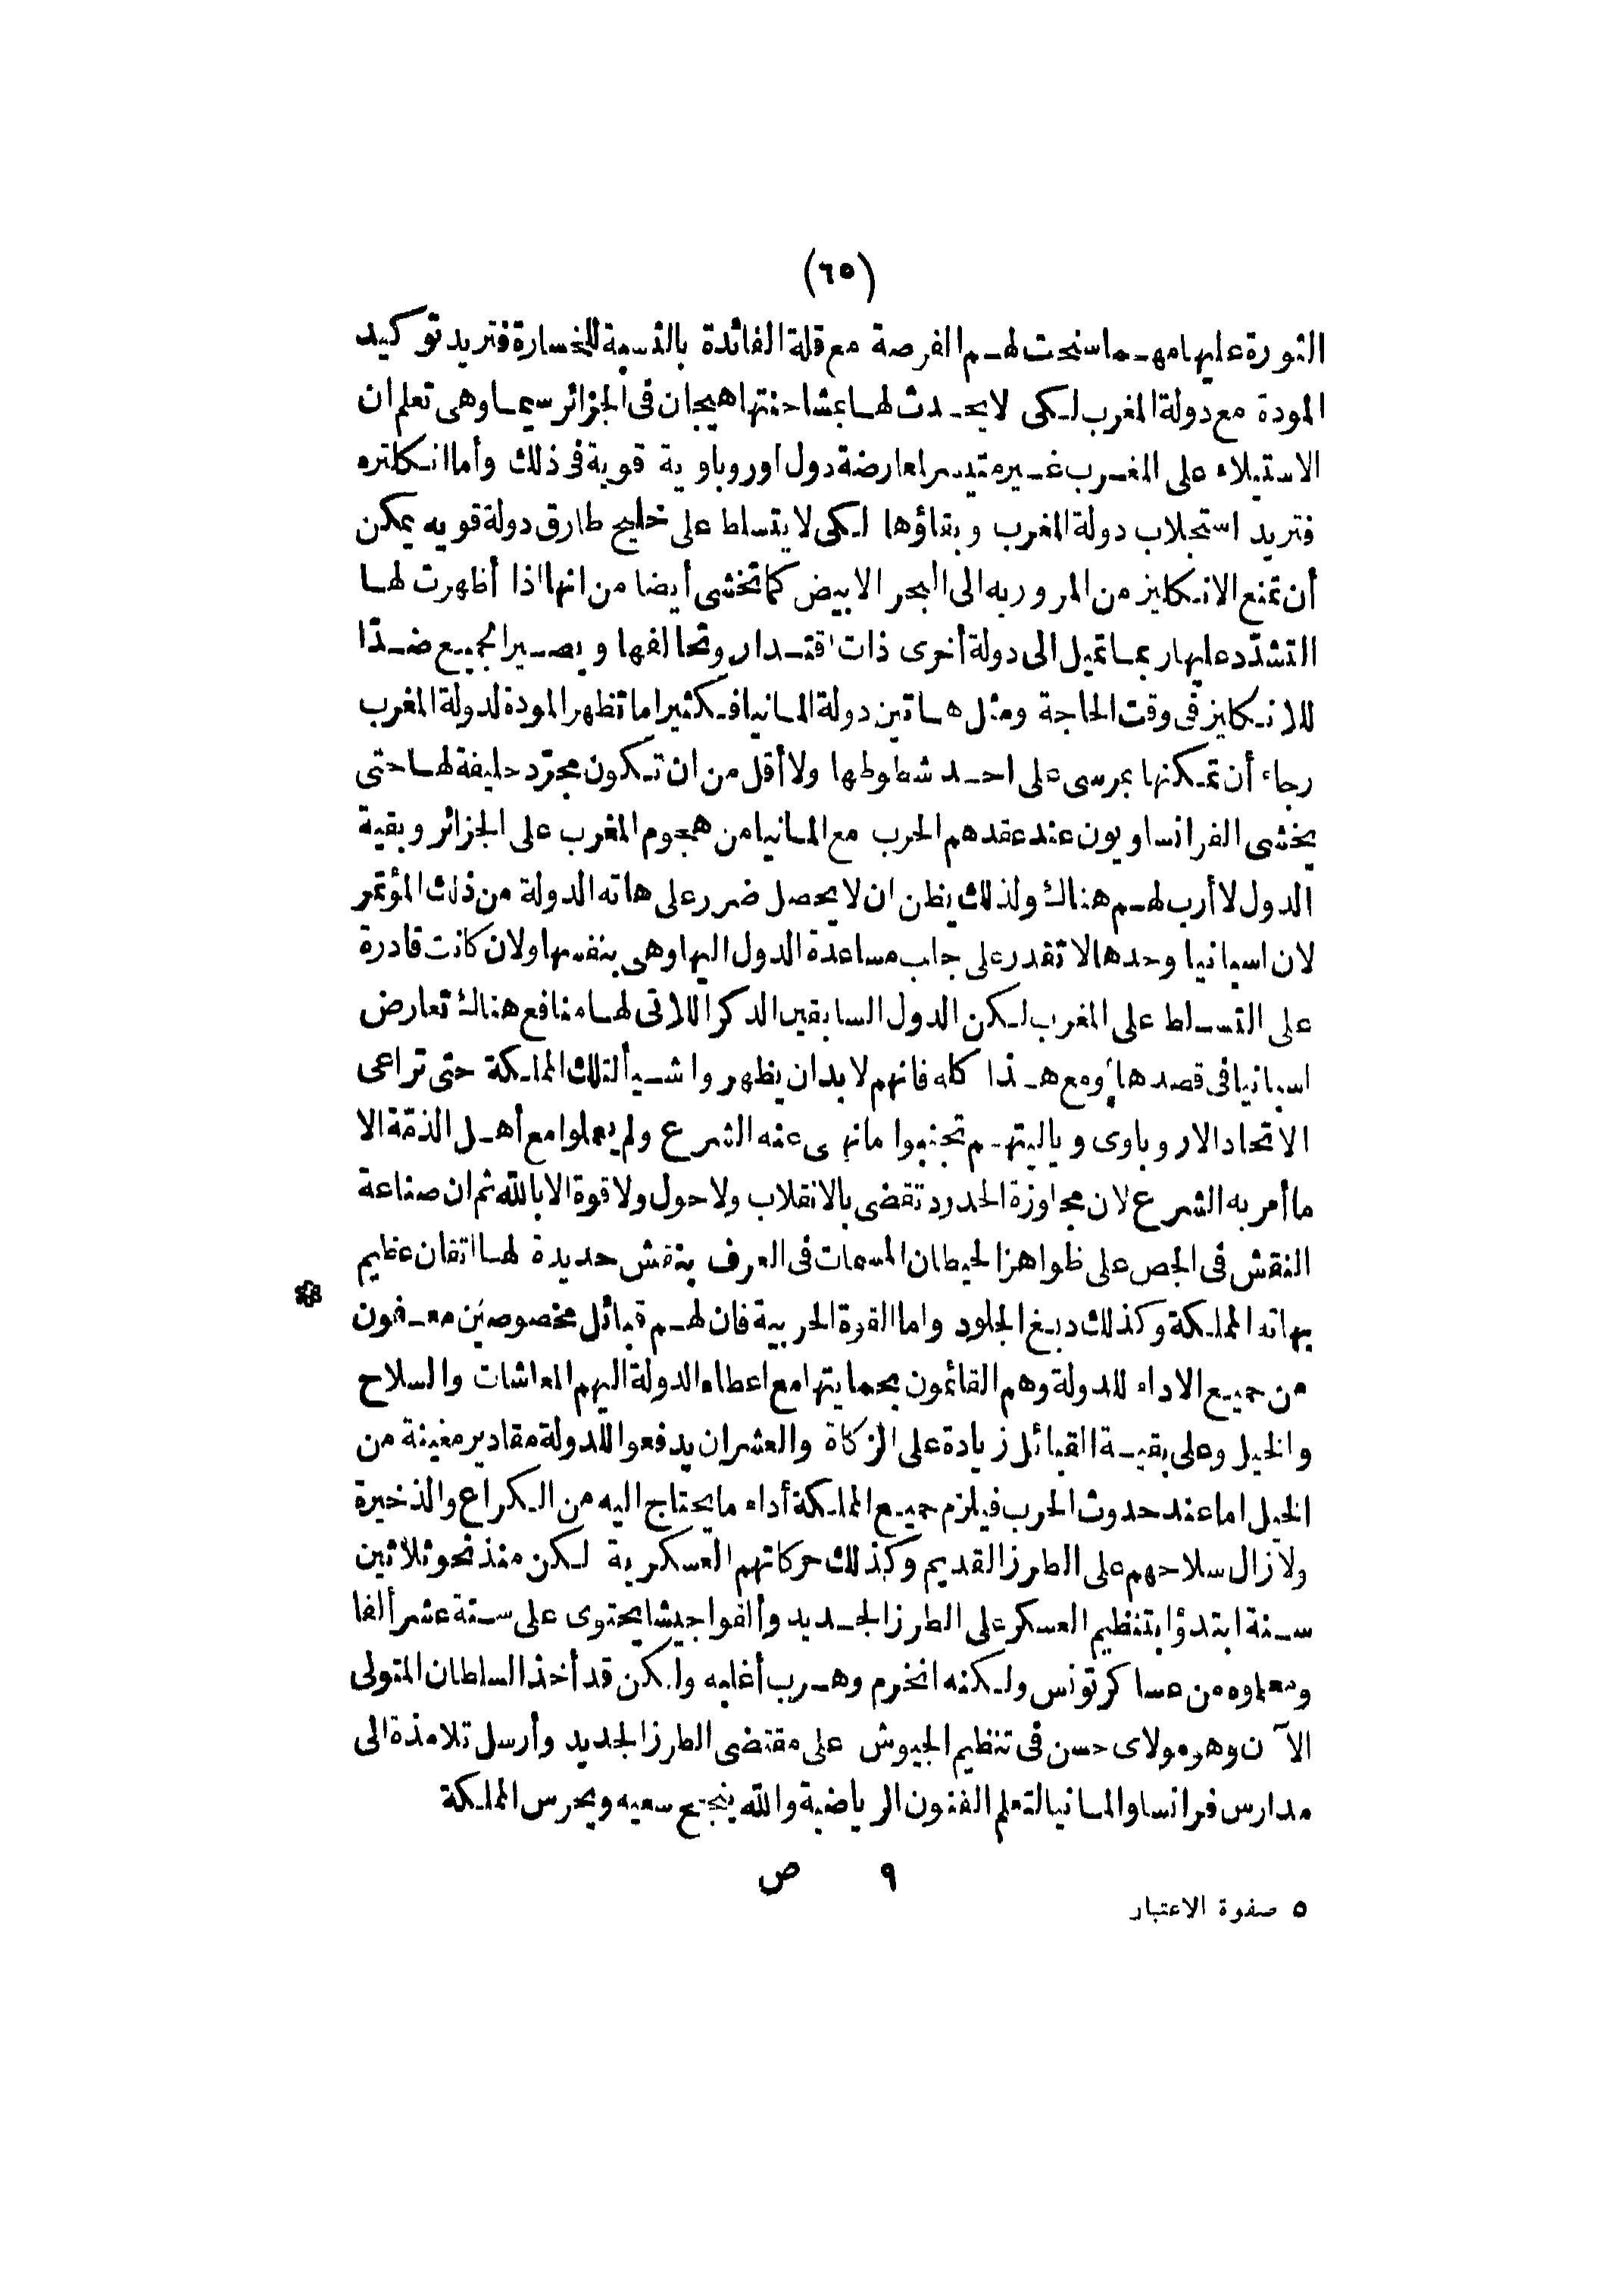 (٦٥)
الثورة عليها مهما سنحت لهم الفرصة مع قلة الفائدة بالنسبة للخسارة فتريد توكيد
المودة مع دولة المغرب لكى لا يحدث لها بمشاحنتها هيجان فى الجزائر سيما وهى تعلم ان
الاستيلاء على المغرب غير متيسر لمعارضة دول اوروباوية قوية فى ذلك وأما انكلتره
فتريد استجلاب دولة المغرب وبقاؤها لكى لا يتسلط على خليج طارق دولة قويه يمكن
أن تمنع الانكليز من المرور به الى البحر الابيض كما تخشى أيضا من انها اذا أظهرت لها
التشدّد عليها ربما تميل الى دولة أخرى ذات اقتدار وتحالفها ويصير الجميع ضدّا
للانكليز فى وقت الحاجة ومثل هاتين دولة المانيا فكثيرا ما تظهر المودة لدولة المغرب
رجاء أن تمكنها بمرسى على احد شطوطها ولا أقل من ان تكون مجرّد حليفة لها حتى
يخشى الفرانساويون عند عقدهم الحرب مع المانيا من هجوم المغرب على الجزائر وبقية
الدول لا أرب لهم هناك ولذلك يظن ان لا يحصل ضرر على هاته الدولة من ذلك المؤتمر
لان اسبانيا وحدها لا تقدر على جلب مساعدة الدول اليها وهى بنفسها ولان كانت قادرة
على التسلط على المغرب لكن الدول السابقين الذكر اللاتى لها منافع هناك تعارض
اسبانيا فى قصدها ومع هذا كله فانهم لا بد ان يظهروا شيأ لتلك المملكة حتى تراعى
الاتحاد الاروباوى وياليتهم تجنبوا ما نهى عنه الشرع ولم يعملوا مع أهل الذمّة الا
ما أمر به الشرع لان مجاوزة الحدود تقضى بالانقلاب ولا حول ولا قوة الا بالله ثم ان صناعة
النقش فى الجص على ظواهر الحيطان المسمات فى العرف بنقش حديدة لها اتقان عظيم
بهاته المملكة وكذلك دبغ الجلود واما القوة الحربية فان لهم قبائل مخصوصين معفون
من جميع الاداء للدولة وهم القائمون بحمايتها مع اعطاء الدولة اليهم المعاشات والسلاح
والخيل وعلى بقية القبائل زيادة على الزكاة والعشر ان يدفعوا للدولة مقادير معينة من
الخيل اما عند حدوث الحرب فيلزم جميع المملكة أداء ما يحتاج اليه من الكراع والذخيرة
ولازال سلاحهم على الطرز القديم وكذلك حركاتهم العسكرية لكن منذ نحو ثلاثين
سنة ابتدؤا بتنظيم العسكر على الطرز الجديد وألفوا جيشا يحتوى على ستة عشر ألفا
ومعلموه من عساكر تونس ولكنه انخرم وهرب أغلبه ولكن قد أخذ السلطان المتولى
الآن وهو مولاى حسن فى تنظيم الجيوش على مقتضى الطرز الجديد وأرسل تلامذة الى
مدارس فرانسا والمانيا لتعلم الفنون الرياضية والله ينجح سعيه ويحرس المملكة
٩ ص
٥ صفوة الاعتبار